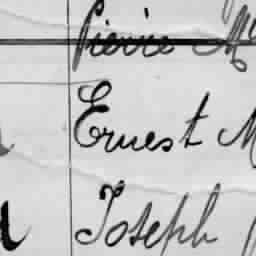 Pierre M
Ernest M
Joseph